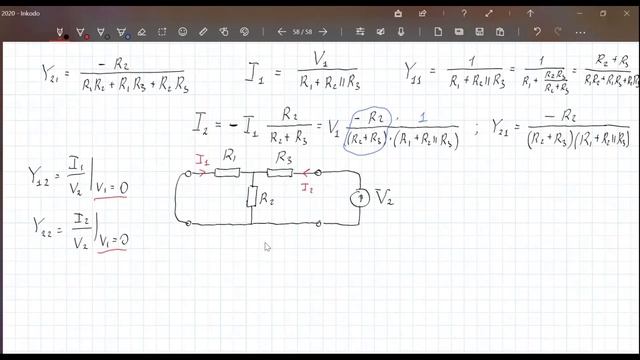 2020 - Inkodo
58 / 58
Y₂₁ = -R₂ / (R₁R₂ + R₁R₃ + R₂R₃)    I₁ = V₁ / (R₁ + R₂||R₃)    Y₁₁ = 1 / (R₁ + R₂||R₃) = 1 / (R₁ + R₂R₃ / (R₂+R₃)) = (R₂ + R₃) / (R₁R₂ + R₁R₃ + R₂R₃)
I₂ = -I₁ R₂ / (R₂ + R₃) = V₁ -R₂ · 1 / ((R₂+R₃) · (R₁ + R₂||R₃)) ; Y₂₁ = -R₂ / ((R₂+R₃)(R₁ + R₂||R₃))
Y₁₂ = I₁ / V₂ | V₁=0
Y₂₂ = I₂ / V₂ | V₁=0
I₁ R₁ R₃ I₂
R₂ V₂